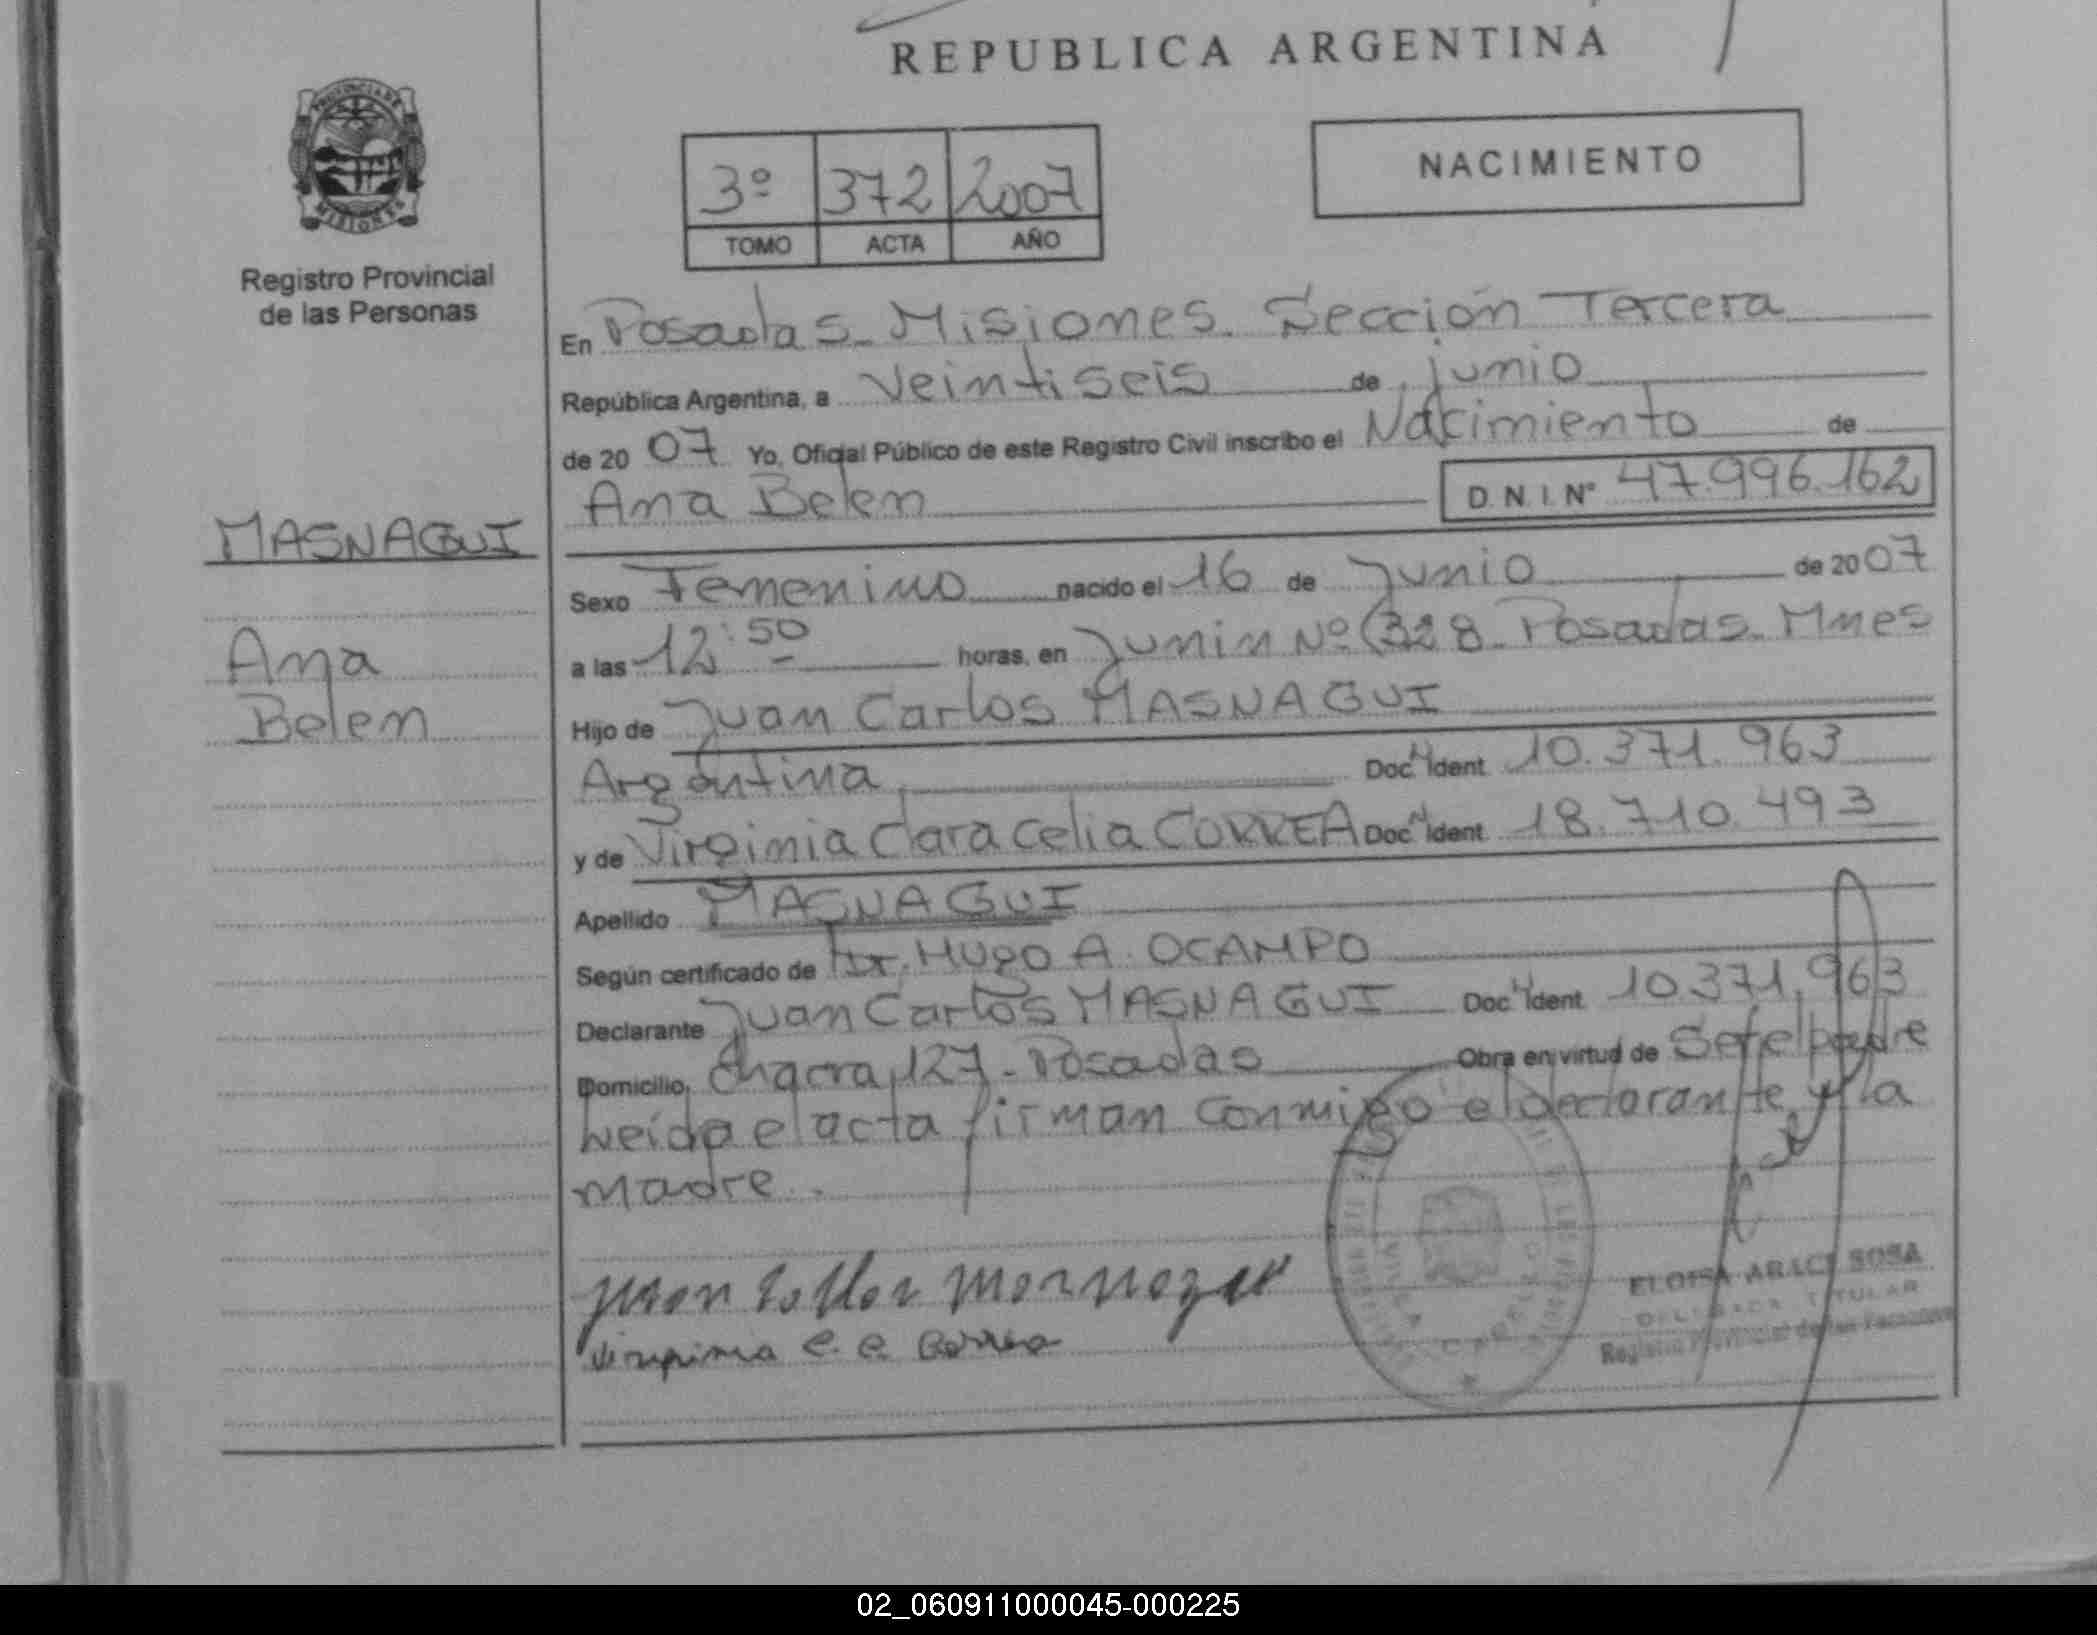 REPUBLICA ARGENTINA
PROVINCIA DE
MISIONES
Registro Provincial
de las Personas
3º 372 2007
TOMO ACTA AÑO
NACIMIENTO
En Posadas - Misiones. Sección Tercera
República Argentina, a Veintiseis de junio
de 20 07 Yo, Oficial Público de este Registro Civil inscribo el Nacimiento de
Ana Belen D.N.I. Nº 47.996.162
MASNAGUI
Ana
Belen
Sexo Femenino nacido el 16 de Junio de 20 07
a las 12:50 horas, en Junin Nº 328 - Posadas - Mnes
Hijo de Juan Carlos MASNAGUI
Argentina Doc. Ident. 10.371.963
y de Virginia Clara Celia CORREA Doc. Ident. 18.710.493
Apellido MASNAGUI
Según certificado de Dr. HUGO A. OCAMPO
Declarante Juan Carlos MASNAGUI Doc. Ident. 10.371.963
Domicilio Chacra 127 - Posadas Obra en virtud de Ser el padre
Leida el acta firman conmigo el declarante y la
madre.
Virginia C. C. Correa
ELOISA ARACI SOSA
DELEGADA TITULAR
Registro Provincial de las Personas
02_060911000045-000225